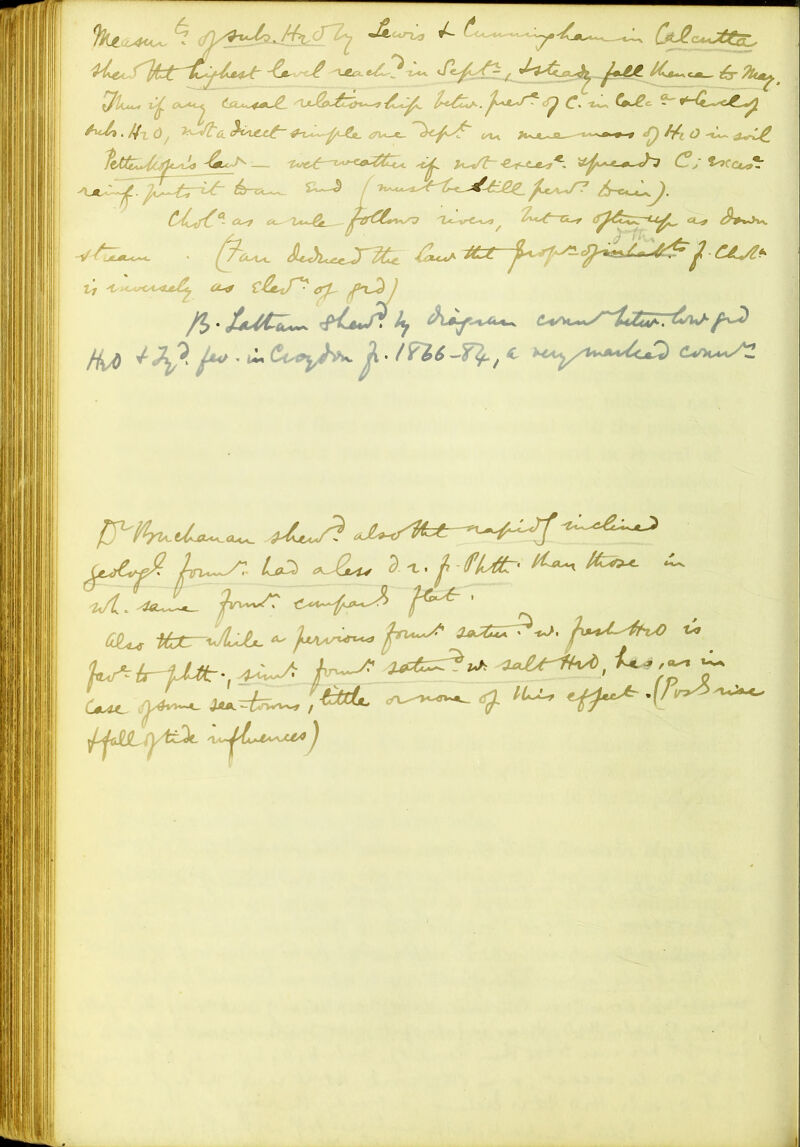 Measurts of sub. H2O by Lewis & Cunningham in Calcutta
shew tht highest level reachd in Septr, & steady fall thence to May.
Thus if any causal relationship betw. prevce of C. in Calca & level of
sub. H2O, not a direct simple one dept on mere mass of H2O in soil
Pettenkofer's law — wet weather if not excese spreads C; excese
rainf. puts it to an end (must be still pervs to air).
Chola as a rule follows rivers, but as often up as down
stream. (Farr deduced the law tht propn of inhabts f. Chola
is inversely as elevn of grd)
B. Latham shewd by diagram connn betw. low grd
H2O & Tyd. fev. in Croydon fr. 1866-84, a very marked connn
Dr Buchanan shewd also tht rapidly inclined
geologl. formns. had a less d. r. fr. Phth. than those in
wh. same formns. comparly flat.
Also tht while a pervious formn saturd w. fresh H2O is
favble to phth., simr formn saturd w. salt H2O, has, as in
case of some sea-towns, little or none of this effect. (Possly rise
& fall of tide influences)